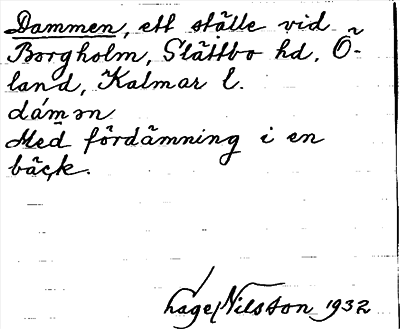 Dammen, ett ställe vid
Borgholm, Slättbo hd, Ö-
land, Kalmar l.
dámən
Med fördämning i en
bäck.
Hage Nilsson 1932